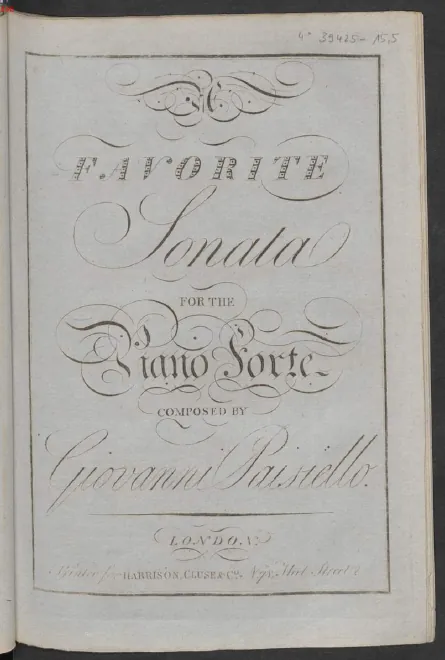 4° 39425-15,5
A
FAVORITE
Sonata
FOR THE
Piano Forte
COMPOSED BY
Giovanni Paisiello.
LONDON:
Printed for HARRISON, CLUSE & Co. No 78, Fleet Street